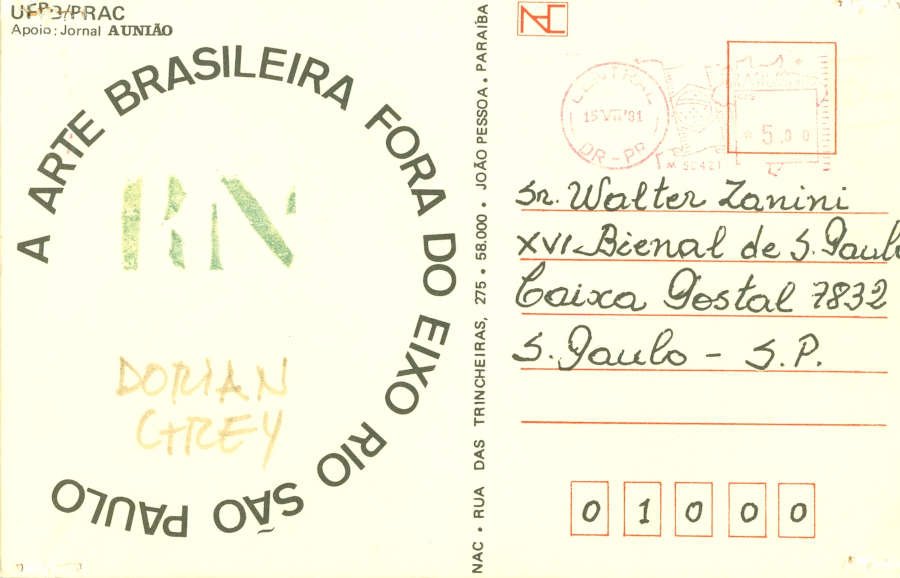 UFPB/PRAC
Apoio: Jornal A UNIÃO
A ARTE BRASILEIRA FORA DO EIXO RIO SÃO PAULO
RN
DORIAN
GREY
NAC • RUA DAS TRINCHEIRAS, 275 • 58.000 • JOÃO PESSOA • PARAÍBA
CENTRAL
15 VII '81
DR-PB
5,00
Sr. Walter Zanini
XVI Bienal de S. Paulo
Caixa Postal 7832
S. Paulo - S.P.
0 1 0 0 0